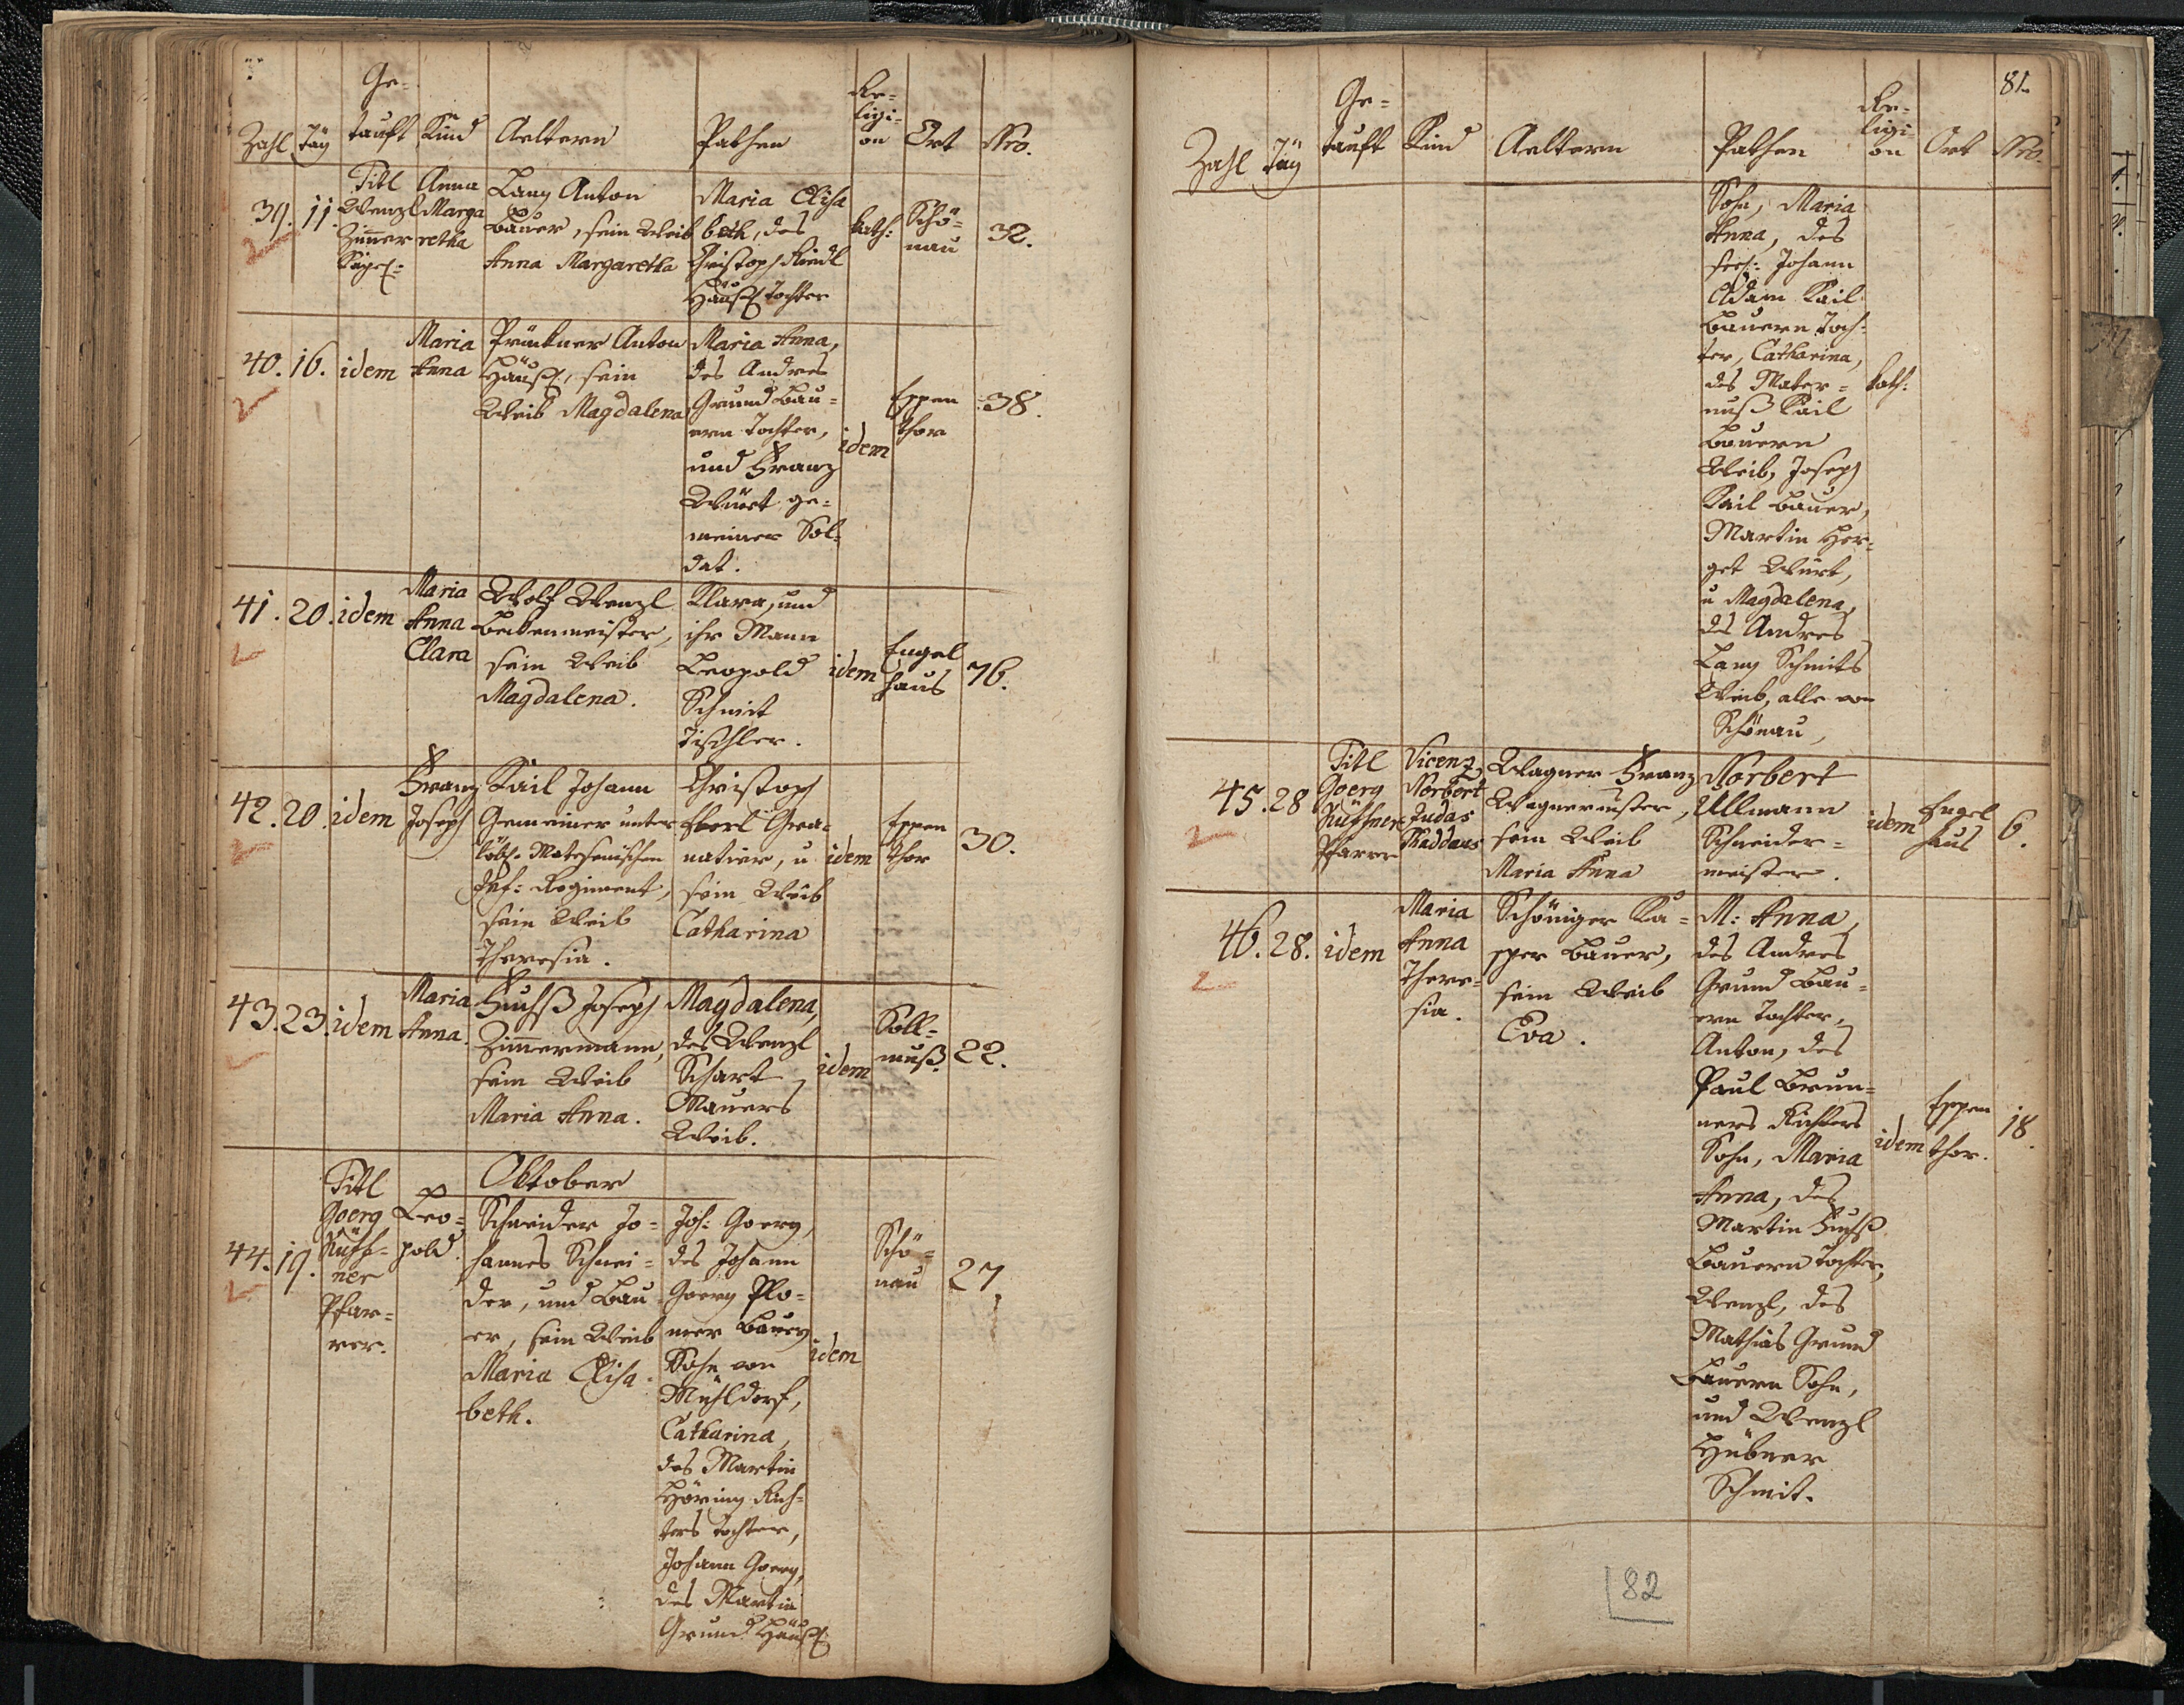 Zahl Täg Ge-
tauft Kind Aeltern Pathen Re-
ligi-
on Ort Nro.
39. 11. Titl
Wenzl
Zimmer Anna
Marga
retha Lang Anton
Bauer, sein Weib
Anna Margaretha Maria Elisa
beth, des
Christoph Riedl
Häußl Tochter kath: Schö-
nau 32.
40. 16. idem Maria
Anna Prünkner Anton
Häußl, sein
Weib Magdalena Maria Anna,
des Andres
Grund Bau-
ern Tochter,
und Franz
Würt ge-
meiner Sol-
dat. idem Espen
thor 38.
41. 20. idem Maria
Anna
Clara Wolf Wenzl
sein Weib
Magdalena. Klara, und
ihr Mann
Leopold
Schmit
Tischler. idem Engel
haus 76.
42. 20. idem Franz
Joseph Kail Johann
Gemeiner unter
löbl. Matesenischen
Inf: Regiment,
sein Weib
Theresia. Christoph
Eberl Gra-
natier, u
sein Weib
Catharina idem Espen
thor 30.
43. 23. idem Maria
Anna. Fuchß Joseph
Zimmermann,
sein Weib
Maria Anna. Magdalena,
des Wenzl
Schart
Mauers
Weib. idem Soll-
muß 22.
Oktober
44. 19. Titl
Goerg
Küff-
ner
Pfar-
rer. Leo-
pold. Schneider Jo-
hannes Schnei-
der, und Bau-
er, sein Weib
Maria Elisa-
beth. Joh: Goerg,
des Johann
Goerg Plo-
mer Bauers
Sohn von
Mühldorf,
Catharina,
des Martin
Höring Rich-
ters Tochter,
Johann Goerg,
des Martin
Grund Häußl idem Schö-
nau 27.
81.
Zahl Täg Ge-
tauft Kind Aeltern Pathen Re-
ligi-
on Ort Nro.
Sohn, Maria
Anna, des
Johann
Adam Kail
Bauern Toch-
ter, Catharina,
des Mater-
nuß Kail
Bauern
Weib, Joseph
Kail Bauer,
Martin Her-
get Würt,
u Magdalena,
des Andres
Lang Schmits
Weib, alle von
Schönau, kath:
45. 28 Titl
Goerg
Küffner
Pfarrer Vicenz
Norbert
Judas
Thaddaus Wagner Franz
Wagnermster,
sein Weib
Maria Anna Norbert
Ullmann
Schneider-
meister. idem Engel
haus 6.
46. 28. idem Maria
Anna
There-
sia. Schöniger Ka-
sper Bauer,
sein Weib
Eva. M: Anna,
des Andres
Grund Bau-
ern Tochter,
Anton, des
Paul Brun-
ners Richters
Sohn, Maria
Anna, des
Martin Fuchß
Bauern Tochter,
Wenzl, des
Mathias Grund
Bauern Sohn,
und Wenzl
Hübner
Schmit. idem Espen
thor. 18.
82